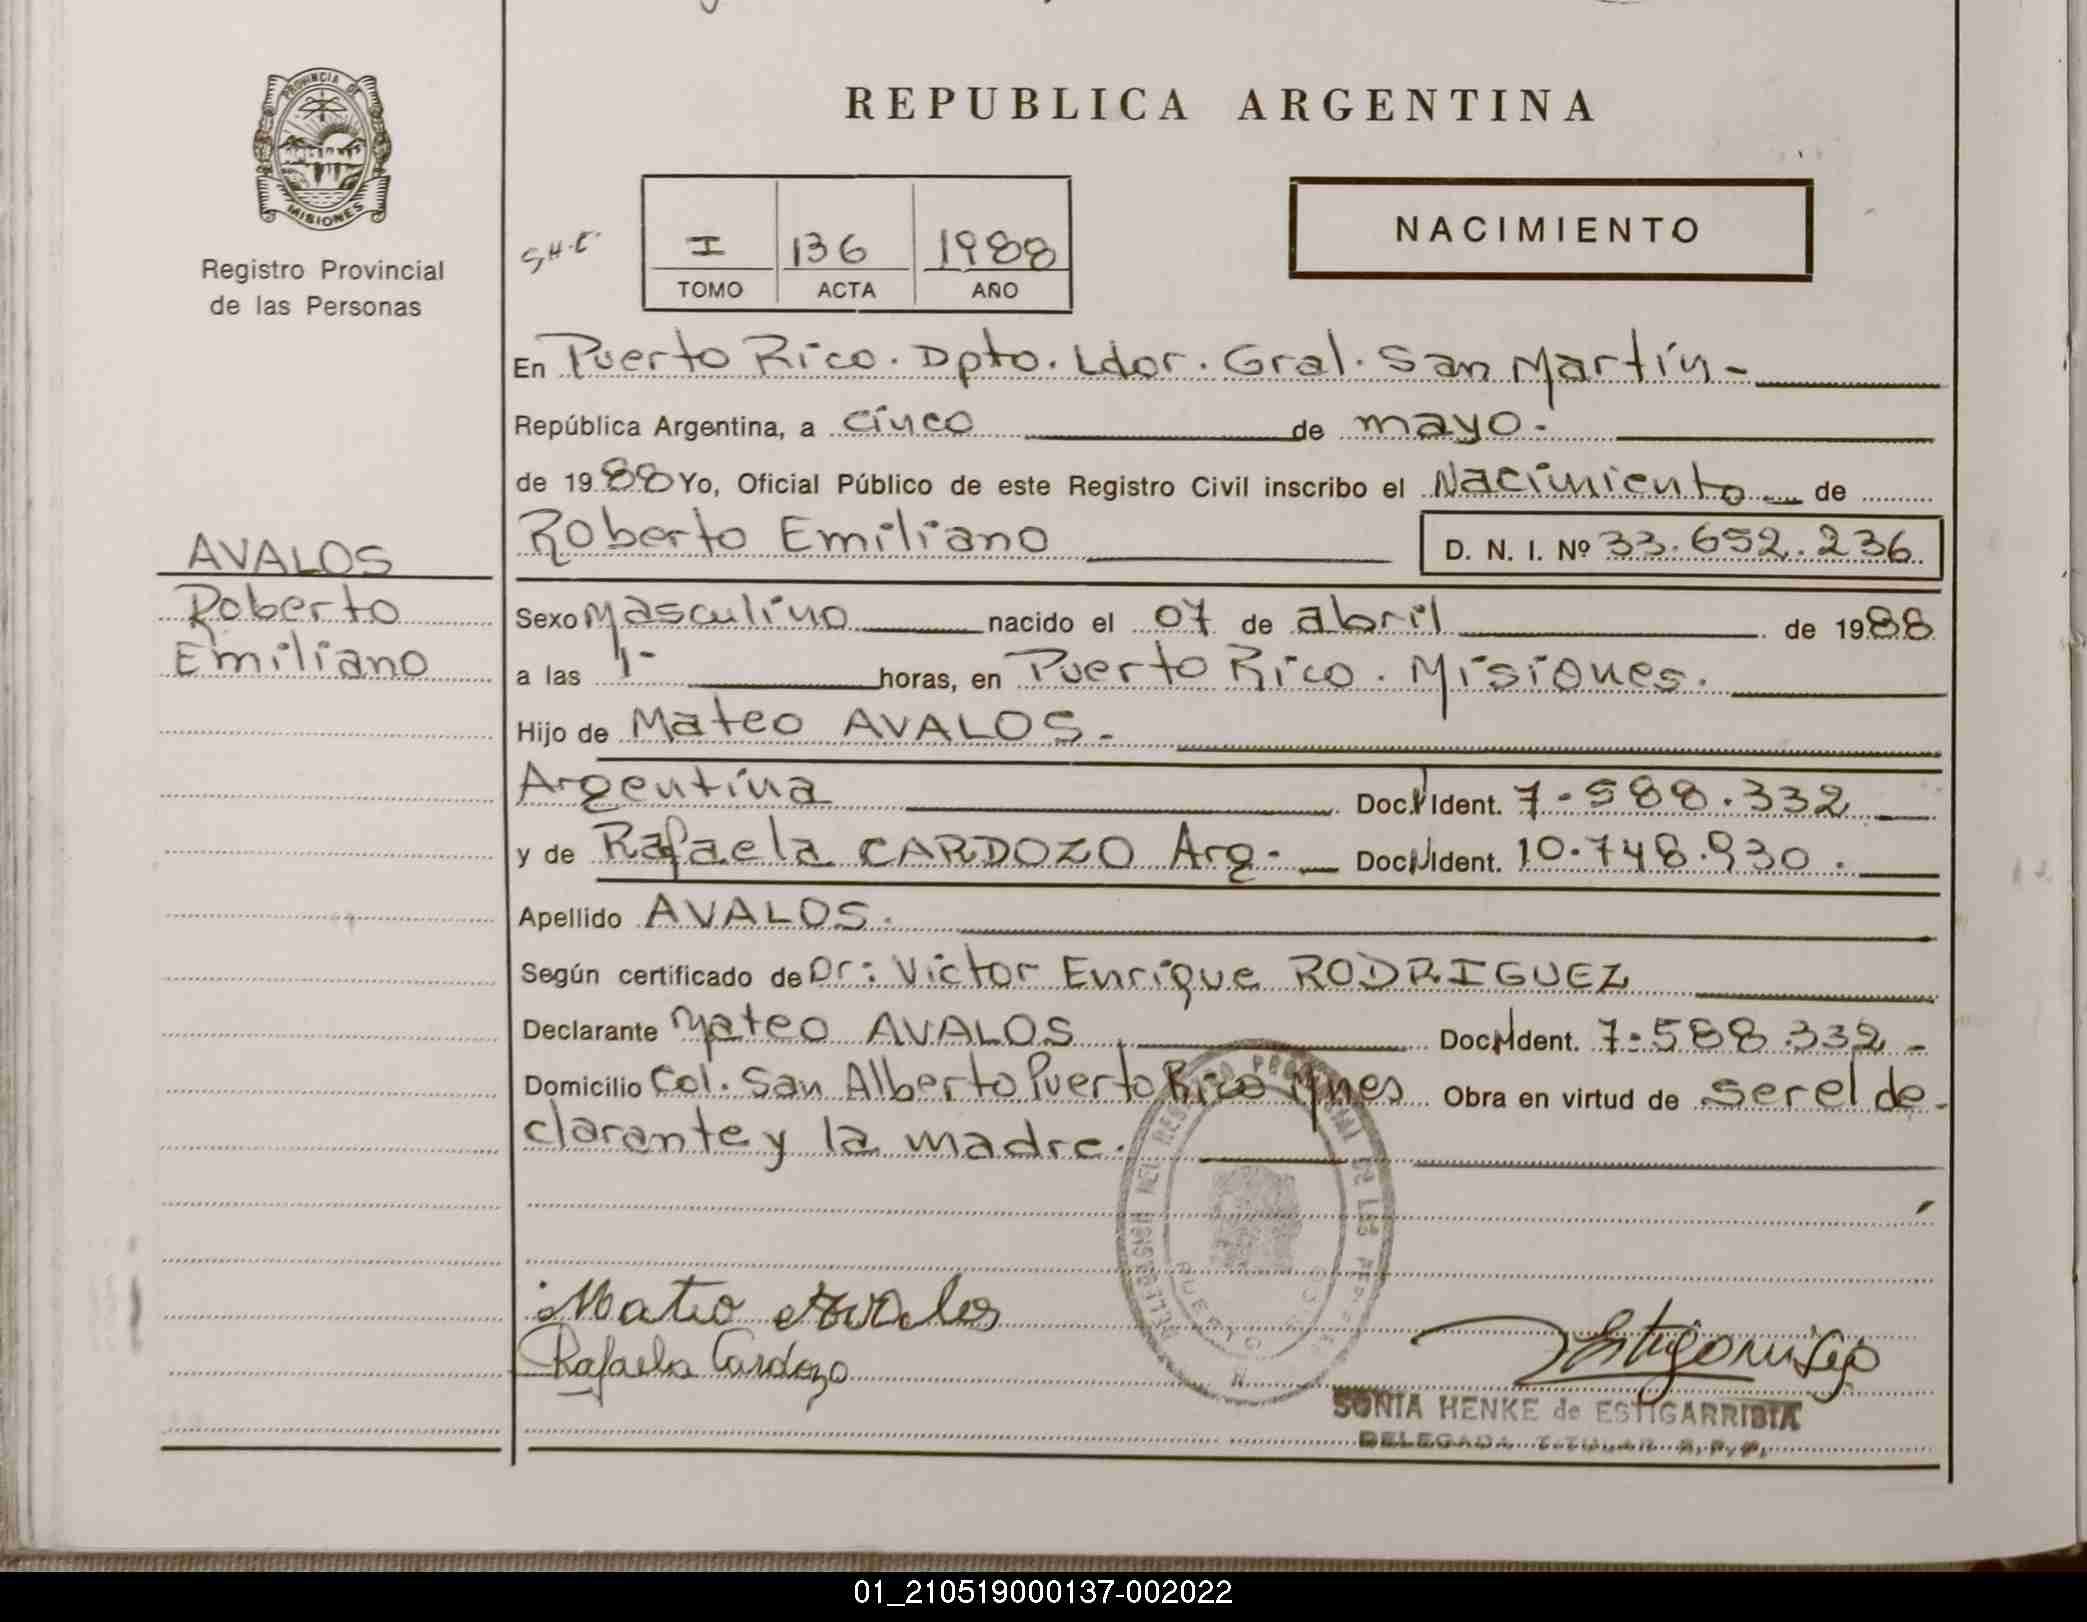 REPUBLICA ARGENTINA
PROVINCIA DE
MISIONES
Registro Provincial
de las Personas
S.H.E.
I 136 1988
TOMO ACTA AÑO
NACIMIENTO
En Puerto Rico. Dpto. Ldor. Gral. San Martín-
República Argentina, a cinco de mayo.
de 1988 Yo, Oficial Público de este Registro Civil inscribo el Nacimiento de
Roberto Emiliano D. N. I. Nº 33.652.236
AVALOS
Roberto
Emiliano
Sexo Masculino nacido el 07 de abril de 1988
a las 1- horas, en Puerto Rico. Misiones.
Hijo de Mateo AVALOS.-
Argentina Doc. Ident. 7.588.332
y de Rafaela CARDOZO Arg. Doc. Ident. 10.748.930.
Apellido AVALOS.
Según certificado de Dr: Victor Enrique RODRIGUEZ
Declarante Mateo AVALOS Doc. Ident. 7.588.332-
Domicilio Col. San Alberto Puerto Rico Mnes Obra en virtud de ser el de-
clarante y la madre.
Mateo Avalos
Rafaela Cardozo
SONIA HENKE de ESTIGARRIBIA
DELEGADA TITULAR R.P.P.
01_210519000137-002022